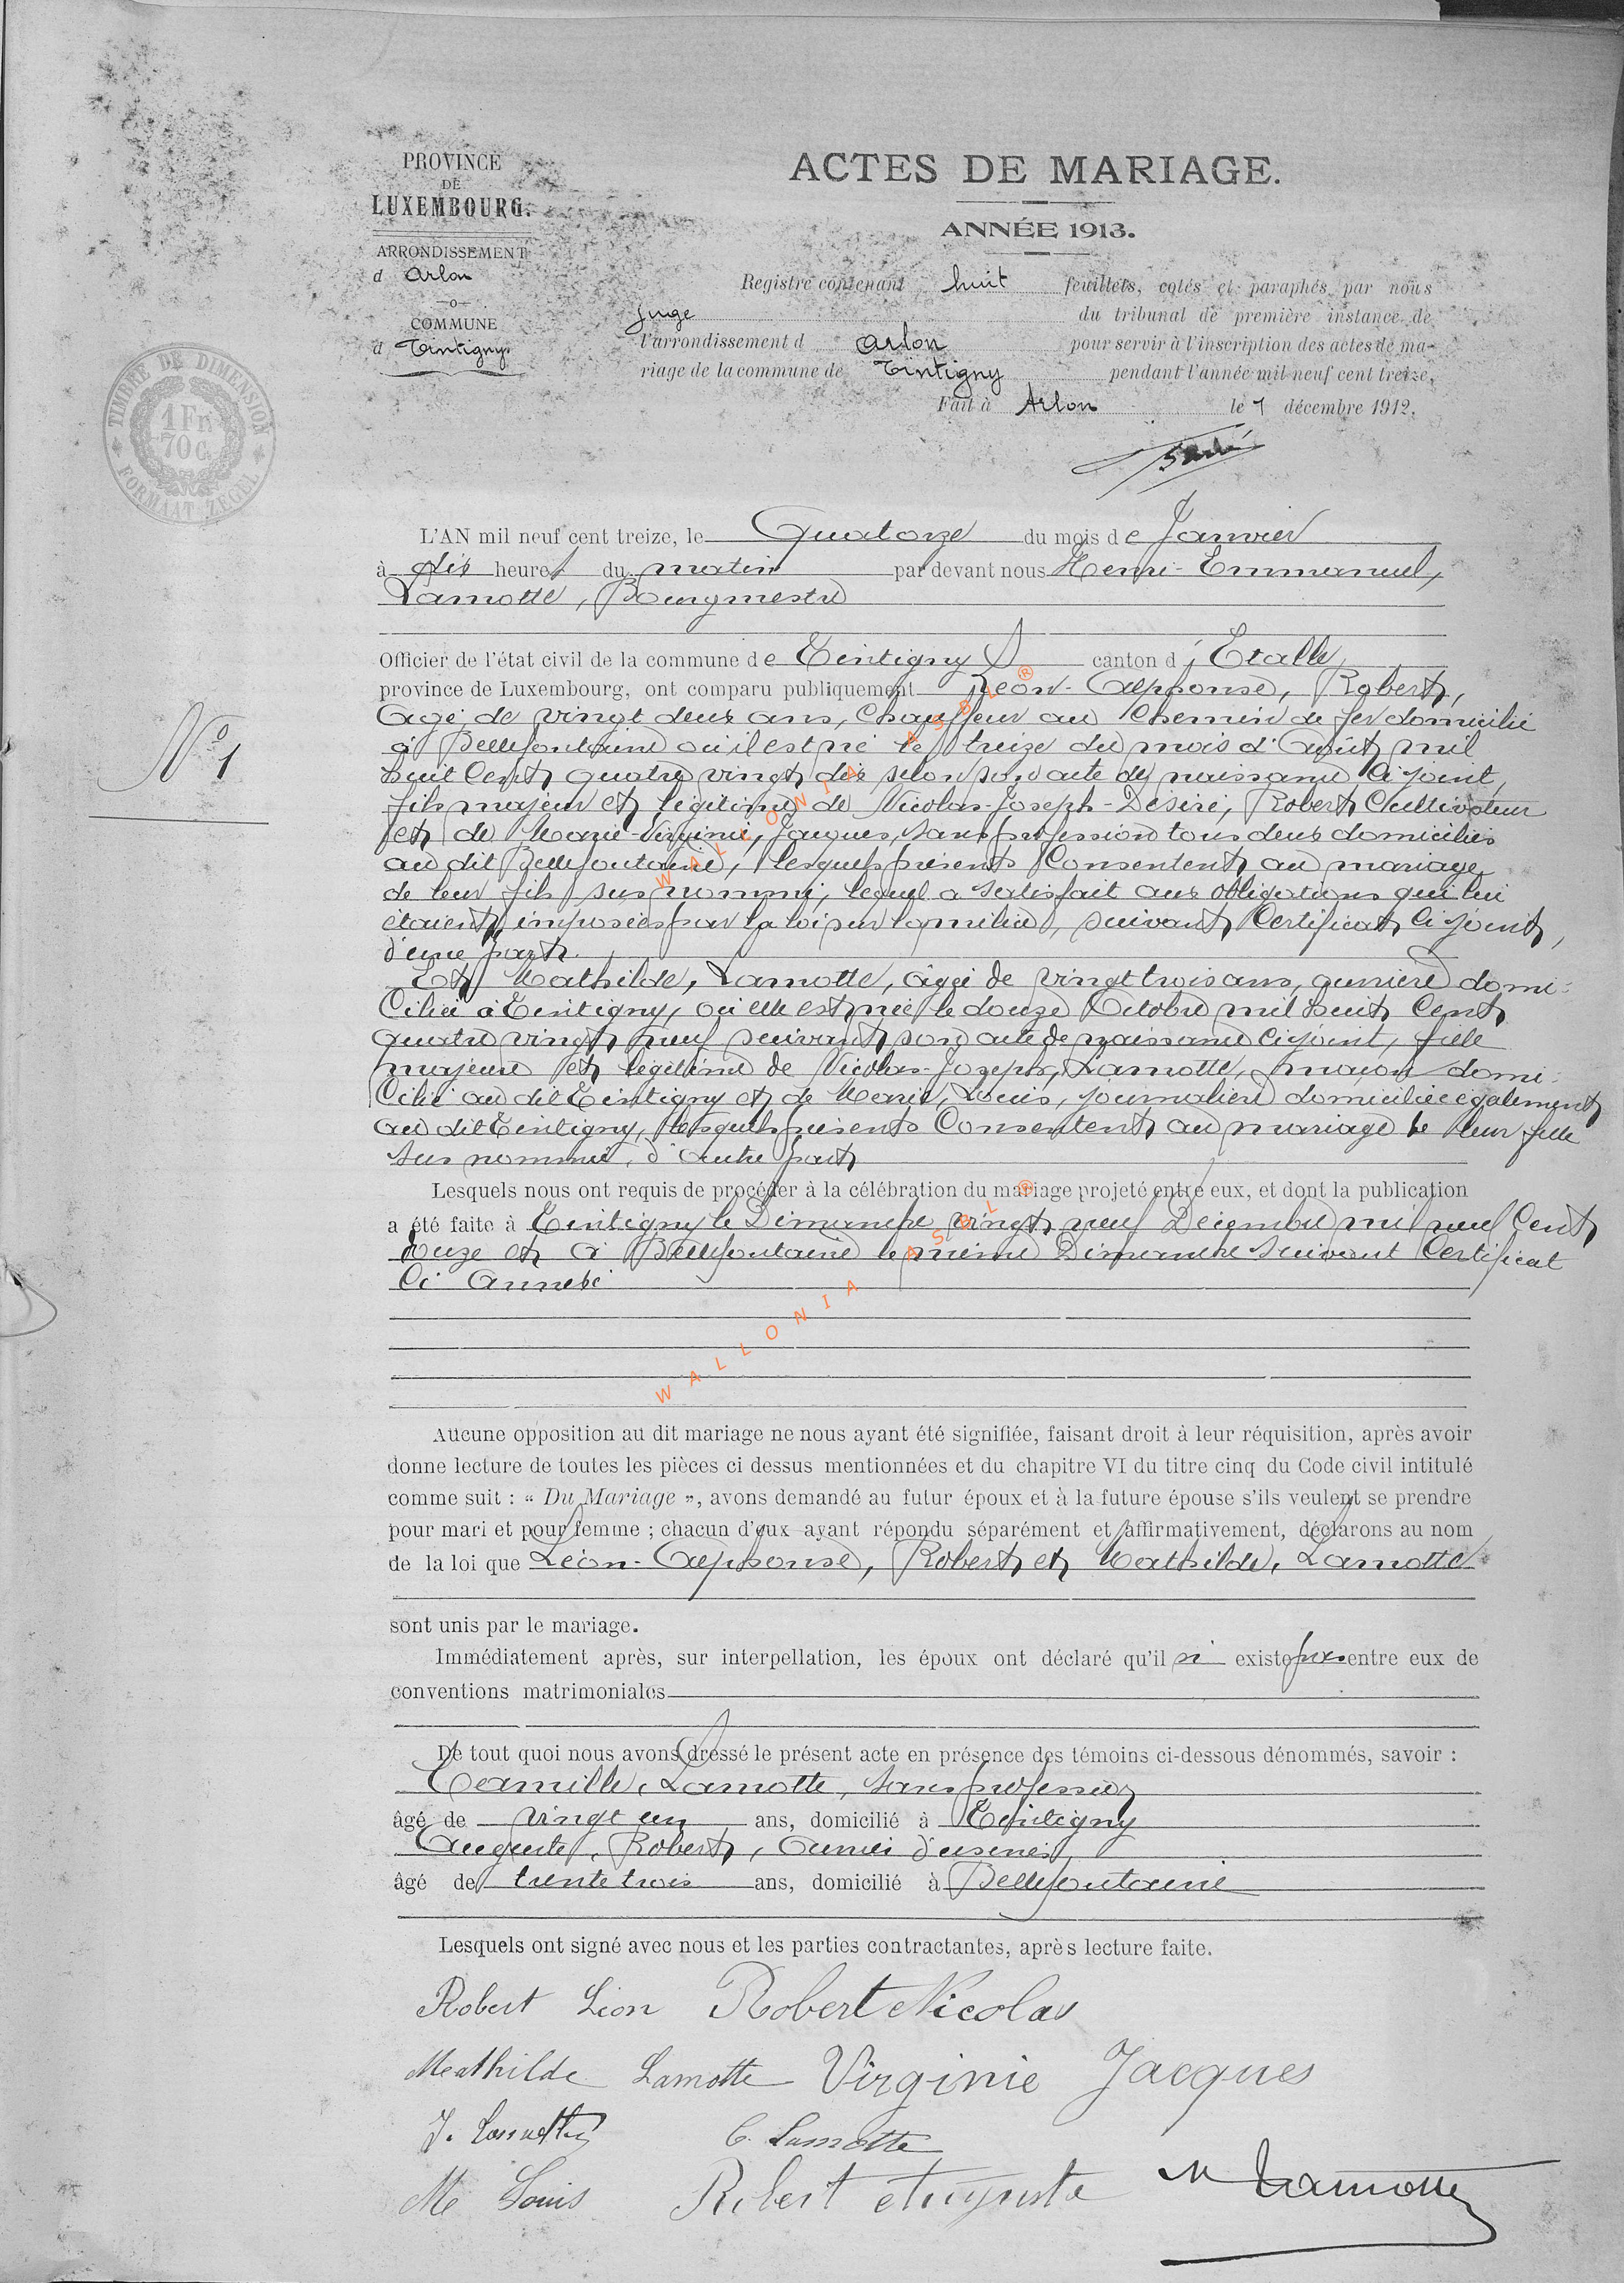 PROVINCE
DE
LUXEMBOURG.
ARRONDISSEMENT
d Arlon
—o—
COMMUNE
d Tintigny
TIMBRE DE DIMENSION
1 Fr.
70 C.
FORMAAT ZEGEL
ACTES DE MARIAGE.
ANNÉE 1913.
Registre contenant huit feuillets, cotés et paraphés par nous
juge du tribunal de première instance de
l'arrondissement d Arlon pour servir à l'inscription des actes de ma-
riage de la commune de Tintigny pendant l'année mil neuf cent treize.
Fait à Arlon le 7 décembre 1912.
N° 1
L'AN mil neuf cent treize, le Quatorze du mois de Janvier
à dix heures du matin par devant nous Henri-Emmanuel,
Lamotte, Bourgmestre
Officier de l'état civil de la commune de Tintigny canton d'Etalle,
province de Luxembourg, ont comparu publiquement Léon-Alphonse, Robert,
âgé de vingt deux ans, chauffeur au chemin de fer domicilié
à Bellefontaine où il est né le treize du mois d'Août mil
huit cent quatre vingt dix selon son acte de naissance ci joint,
fils majeur et légitime de Nicolas-Joseph-Désiré, Robert Cultivateur
et de Marie-Virginie, Jacques, sans profession tous deux domiciliés
au dit Bellefontaine, lesquels présents consentent au mariage
de leur fils sus nommé, lequel a satisfait aux obligations qui lui
étaient imposées par la loi sur la milice, suivant certificat ci joint,
d'une part.
Et Mathilde, Lamotte, âgée de vingt trois ans, ouvrière domi-
ciliée à Tintigny, où elle est née le douze Octobre mil huit cent
quatre vingt neuf suivant son acte de naissance ci joint, fille
majeure et légitime de Nicolas-Joseph, Lamotte, maçon domi-
cilié au dit Tintigny et de Marie, Louis, journalière domiciliée également
au dit Tintigny, lesquels présents consentent au mariage de leur fille
sus nommée, d'autre part
Lesquels nous ont requis de procéder à la célébration du mariage projeté entre eux, et dont la publication
a été faite à Tintigny le Dimanche vingt neuf Décembre mil neuf cent
douze et à Bellefontaine le même Dimanche suivant certificat
ci annexé
Aucune opposition au dit mariage ne nous ayant été signifiée, faisant droit à leur réquisition, après avoir
donne lecture de toutes les pièces ci dessus mentionnées et du chapitre VI du titre cinq du Code civil intitulé
comme suit : « Du Mariage », avons demandé au futur époux et à la future épouse s'ils veulent se prendre
pour mari et pour femme ; chacun d'eux ayant répondu séparément et affirmativement, déclarons au nom
de la loi que Léon-Alphonse, Robert et Mathilde, Lamotte
sont unis par le mariage.
Immédiatement après, sur interpellation, les époux ont déclaré qu'il n' existe pas entre eux de
conventions matrimoniales
De tout quoi nous avons dressé le présent acte en présence des témoins ci-dessous dénommés, savoir :
Camille, Lamotte, sans profession
âgé de vingt un ans, domicilié à Tintigny
Auguste, Robert, Ouvrier d'usines,
âgé de trente trois ans, domicilié à Bellefontaine
Lesquels ont signé avec nous et les parties contractantes, après lecture faite.
Robert Léon Robert Nicolas
Mathilde Lamotte Virginie Jacques
J. Lamotte C. Lamotte
Me Louis Robert Auguste H Lamotte
WALLONIA ASBL ®
WALLONIA ASBL ®